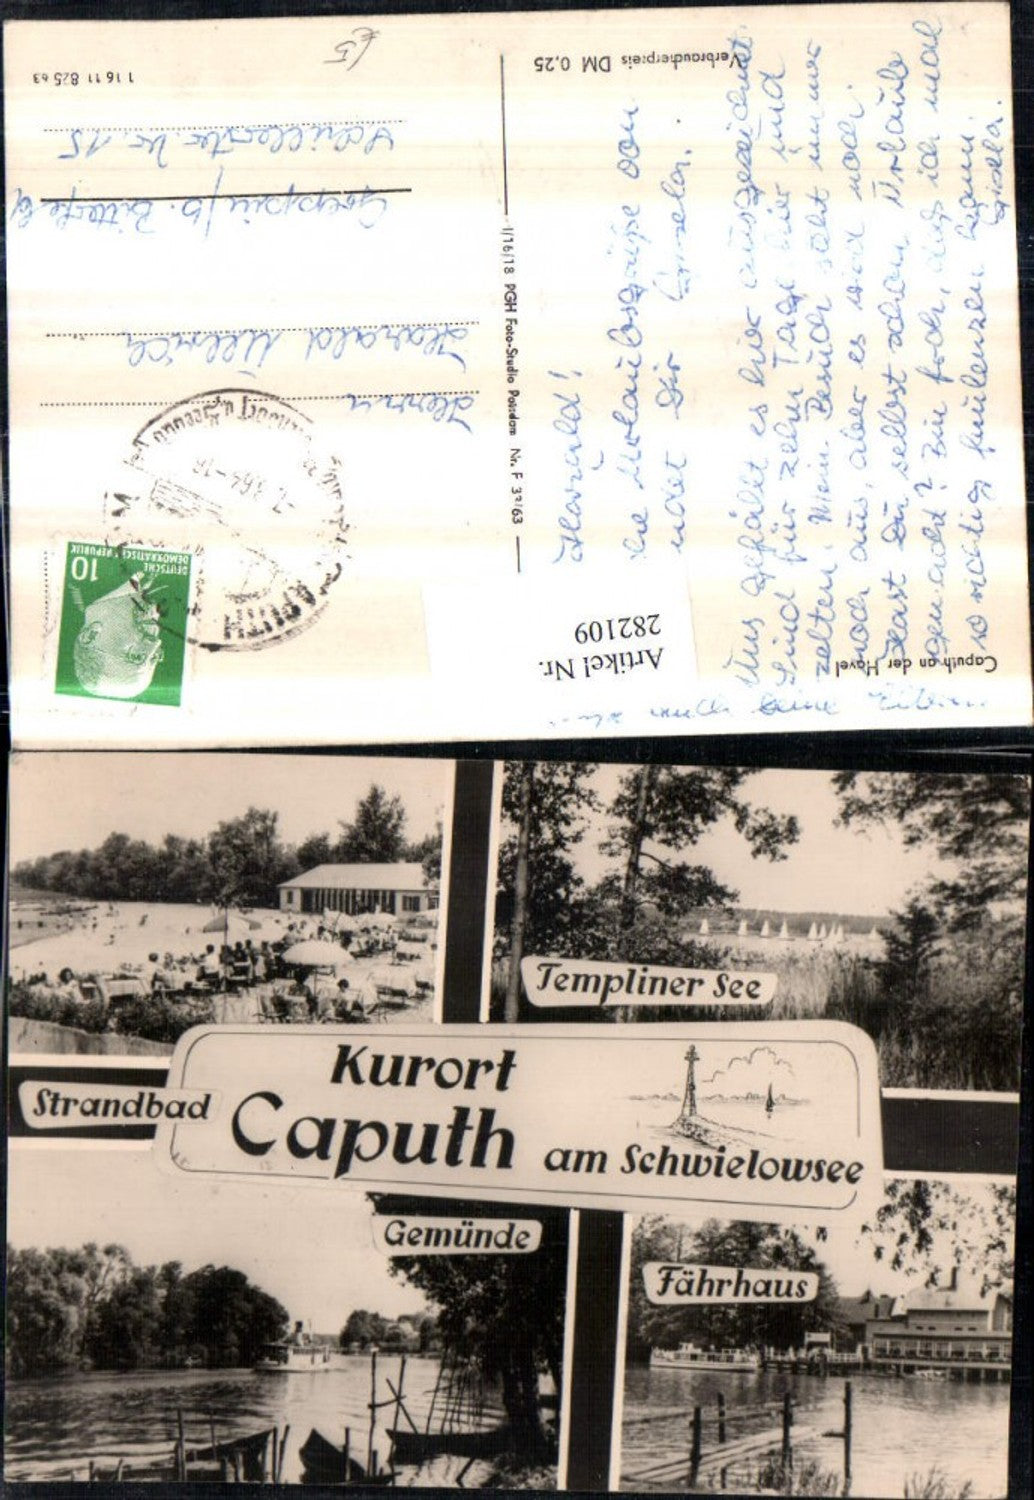 Caputh an der Havel
Verbraucherpreis DM 0,25
I/16/18 PGH Foto-Studio Potsdam Nr. F 33/63
Harald!
Liebe Urlaubsgrüße von
Uns gefällt es hier ausgezeichnet.
Sind für zehn Tage hier und
zelten. Mein Besuch steht immer
noch aus, aber es wird noch.
Hast Du selbst schon Urlaub
gemacht? Bin froh, daß ich mal
so richtig faulenzen kann.
Gisela.
DEUTSCHE
DEMOKRATISCHE REPUBLIK
10
CAPUTH
Herrn
Harald Ullrich
Greppin / b. Bitterfeld
Schillerstr. Nr. 15
1 16 11 825 63
£5
Artikel Nr.
282109
Templiner See
Strandbad
Kurort
Caputh am Schwielowsee
Gemünde
Fährhaus